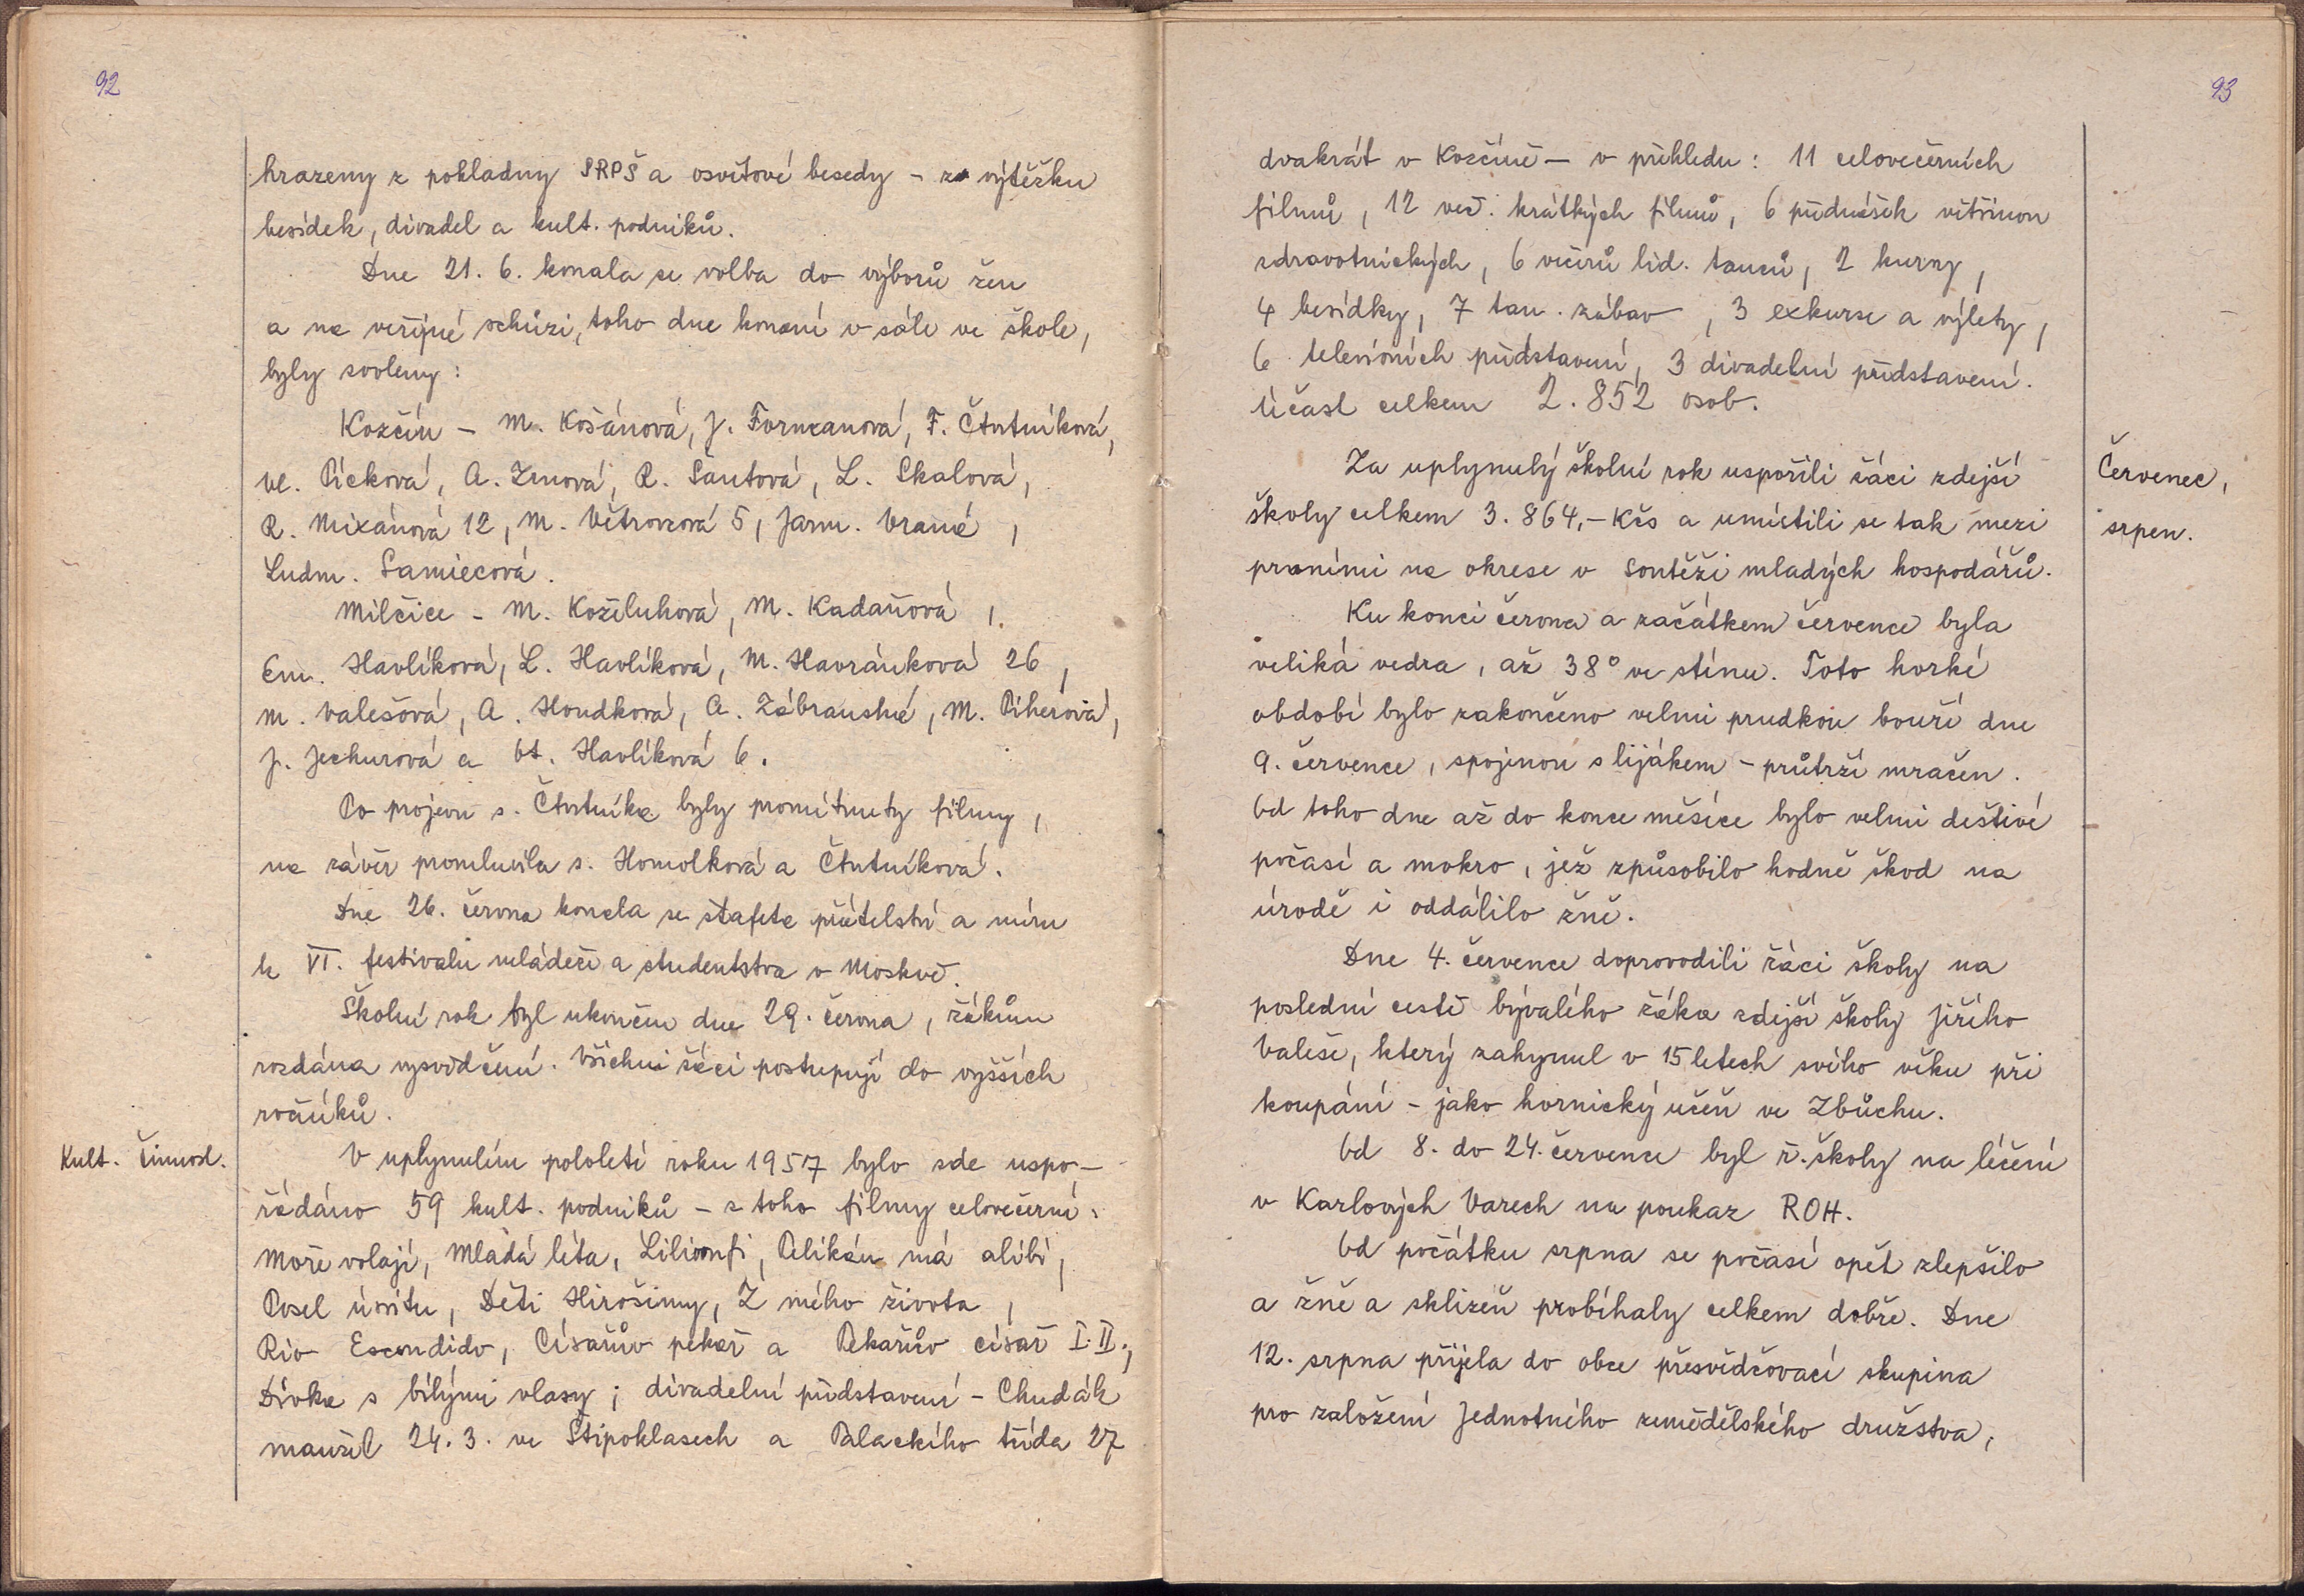 92
hrazeny z pokladny SRPŠ a osvětové besedy - z výtěžku
besídek, divadel a kult. podniků.
Dne 21. 6. konala se volba do výborů žen
a na veřejné schůzi, toho dne konané v sále ve škole,
byly zvoleny:
Kozčín - M. Košánová, J. Formanová, F. Čtrtníková,
Vl. Pícková, A. Zrnová, R. Šautová, L. Skalová,
R. Mixánová 12, M. Větrovcová 5, Jarm. Vraná,
Ludm. Samiecová.
Milčice - M. Koželuhová, M. Kadaňová,
Em. Havlíková, L. Havlíková, M. Havránková 26,
M. Valešová, A. Houdková, A. Zábranská, M. Piherová,
J. Jechurová a Ot. Havlíková 6.
Po projevu s. Čtrtníka byly promítnuty filmy,
na závěr promluvila s. Homolková a Čtrtníková.
Dne 26. června konala se štafeta přátelství a míru
k VI. festivalu mládeže a studentstva v Moskvě.
Školní rok byl ukončen dne 29. června, žákům
rozdána vysvědčení. Všichni žáci postupují do vyšších
ročníků.
Kult. činnost.
V uplynulém pololetí roku 1957 bylo zde uspo-
řádáno 59 kult. podniků - z toho filmy celovečerní:
Moře volají, Mladá léta, Liliomfi, Pelikán má alibi,
Posel úsvitu, Děti Hirošimy, Z mého života,
Rio Escondido, Císařův pekař a Pekařův císař I. II.,
Dívka s bílými vlasy; divadelní představení - Chudák
manžel 24. 3. ve Štipoklasech a Palackého třída 27
93
dvakrát v Kozčíně - v přehledu: 11 celovečerních
filmů, 12 več. krátkých filmů, 6 přednášek většinou
zdravotnických, 6 večerů lid. tanců, 2 kurzy,
4 besídky, 7 tan. zábav, 3 exkurse a výlety,
6 televisních představení, 3 divadelní představení.
Účast celkem 2.852 osob.
Červenec,
srpen.
Za uplynulý školní rok uspořili žáci zdejší
školy celkem 3.864,- Kčs a umístili se tak mezi
prvními na okrese v Soutěži mladých hospodářů.
Ku konci června a začátkem července byla
veliká vedra, až 38° ve stínu. Toto horké
období bylo zakončeno velmi prudkou bouří dne
9. července, spojenou s lijákem - průtrží mračen.
Od toho dne až do konce měsíce bylo velmi deštivé
počasí a mokro, jež způsobilo hodně škod na
úrodě i oddálilo žně.
Dne 4. července doprovodili žáci školy na
poslední cestě bývalého žáka zdejší školy Jiřího
Valeše, který zahynul v 15 letech svého věku při
koupání - jako hornický učeň ve Zbůchu.
Od 8. do 24. července byl ř. školy na léčení
v Karlových Varech na poukaz ROH.
Od počátku srpna se počasí opět zlepšilo
a žně a sklizeň probíhaly celkem dobře. Dne
12. srpna přijela do obce přesvědčovací skupina
pro založení Jednotného zemědělského družstva,